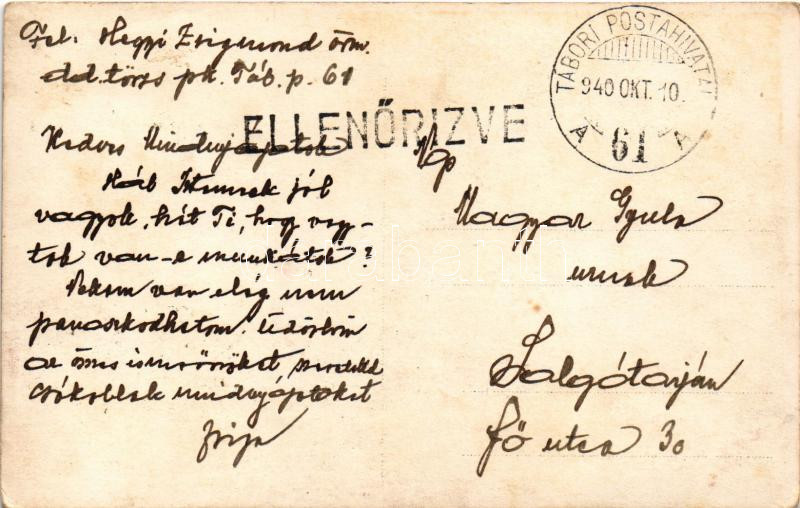 Fel. Hegyi Zsigmond őrm.
dd. törzs pk. Táb. p. 61
ELLENŐRIZVE
TÁBORI POSTAHIVATAL
940 OKT. 10.
A 61 A
Kedves Mindnyájatok
Hál Istennek jól
vagyok, hát Ti, hogy vagy-
tok van-e munkátok?
Nekem van elég nem
panaszkodhatom. Üdözlöm
az össes ismerősöket, szeretettel
csókollak mindnyájatokat
Zsiga
Ngs
Magyar Gyula
urnak
Salgótarján
fő utca 30